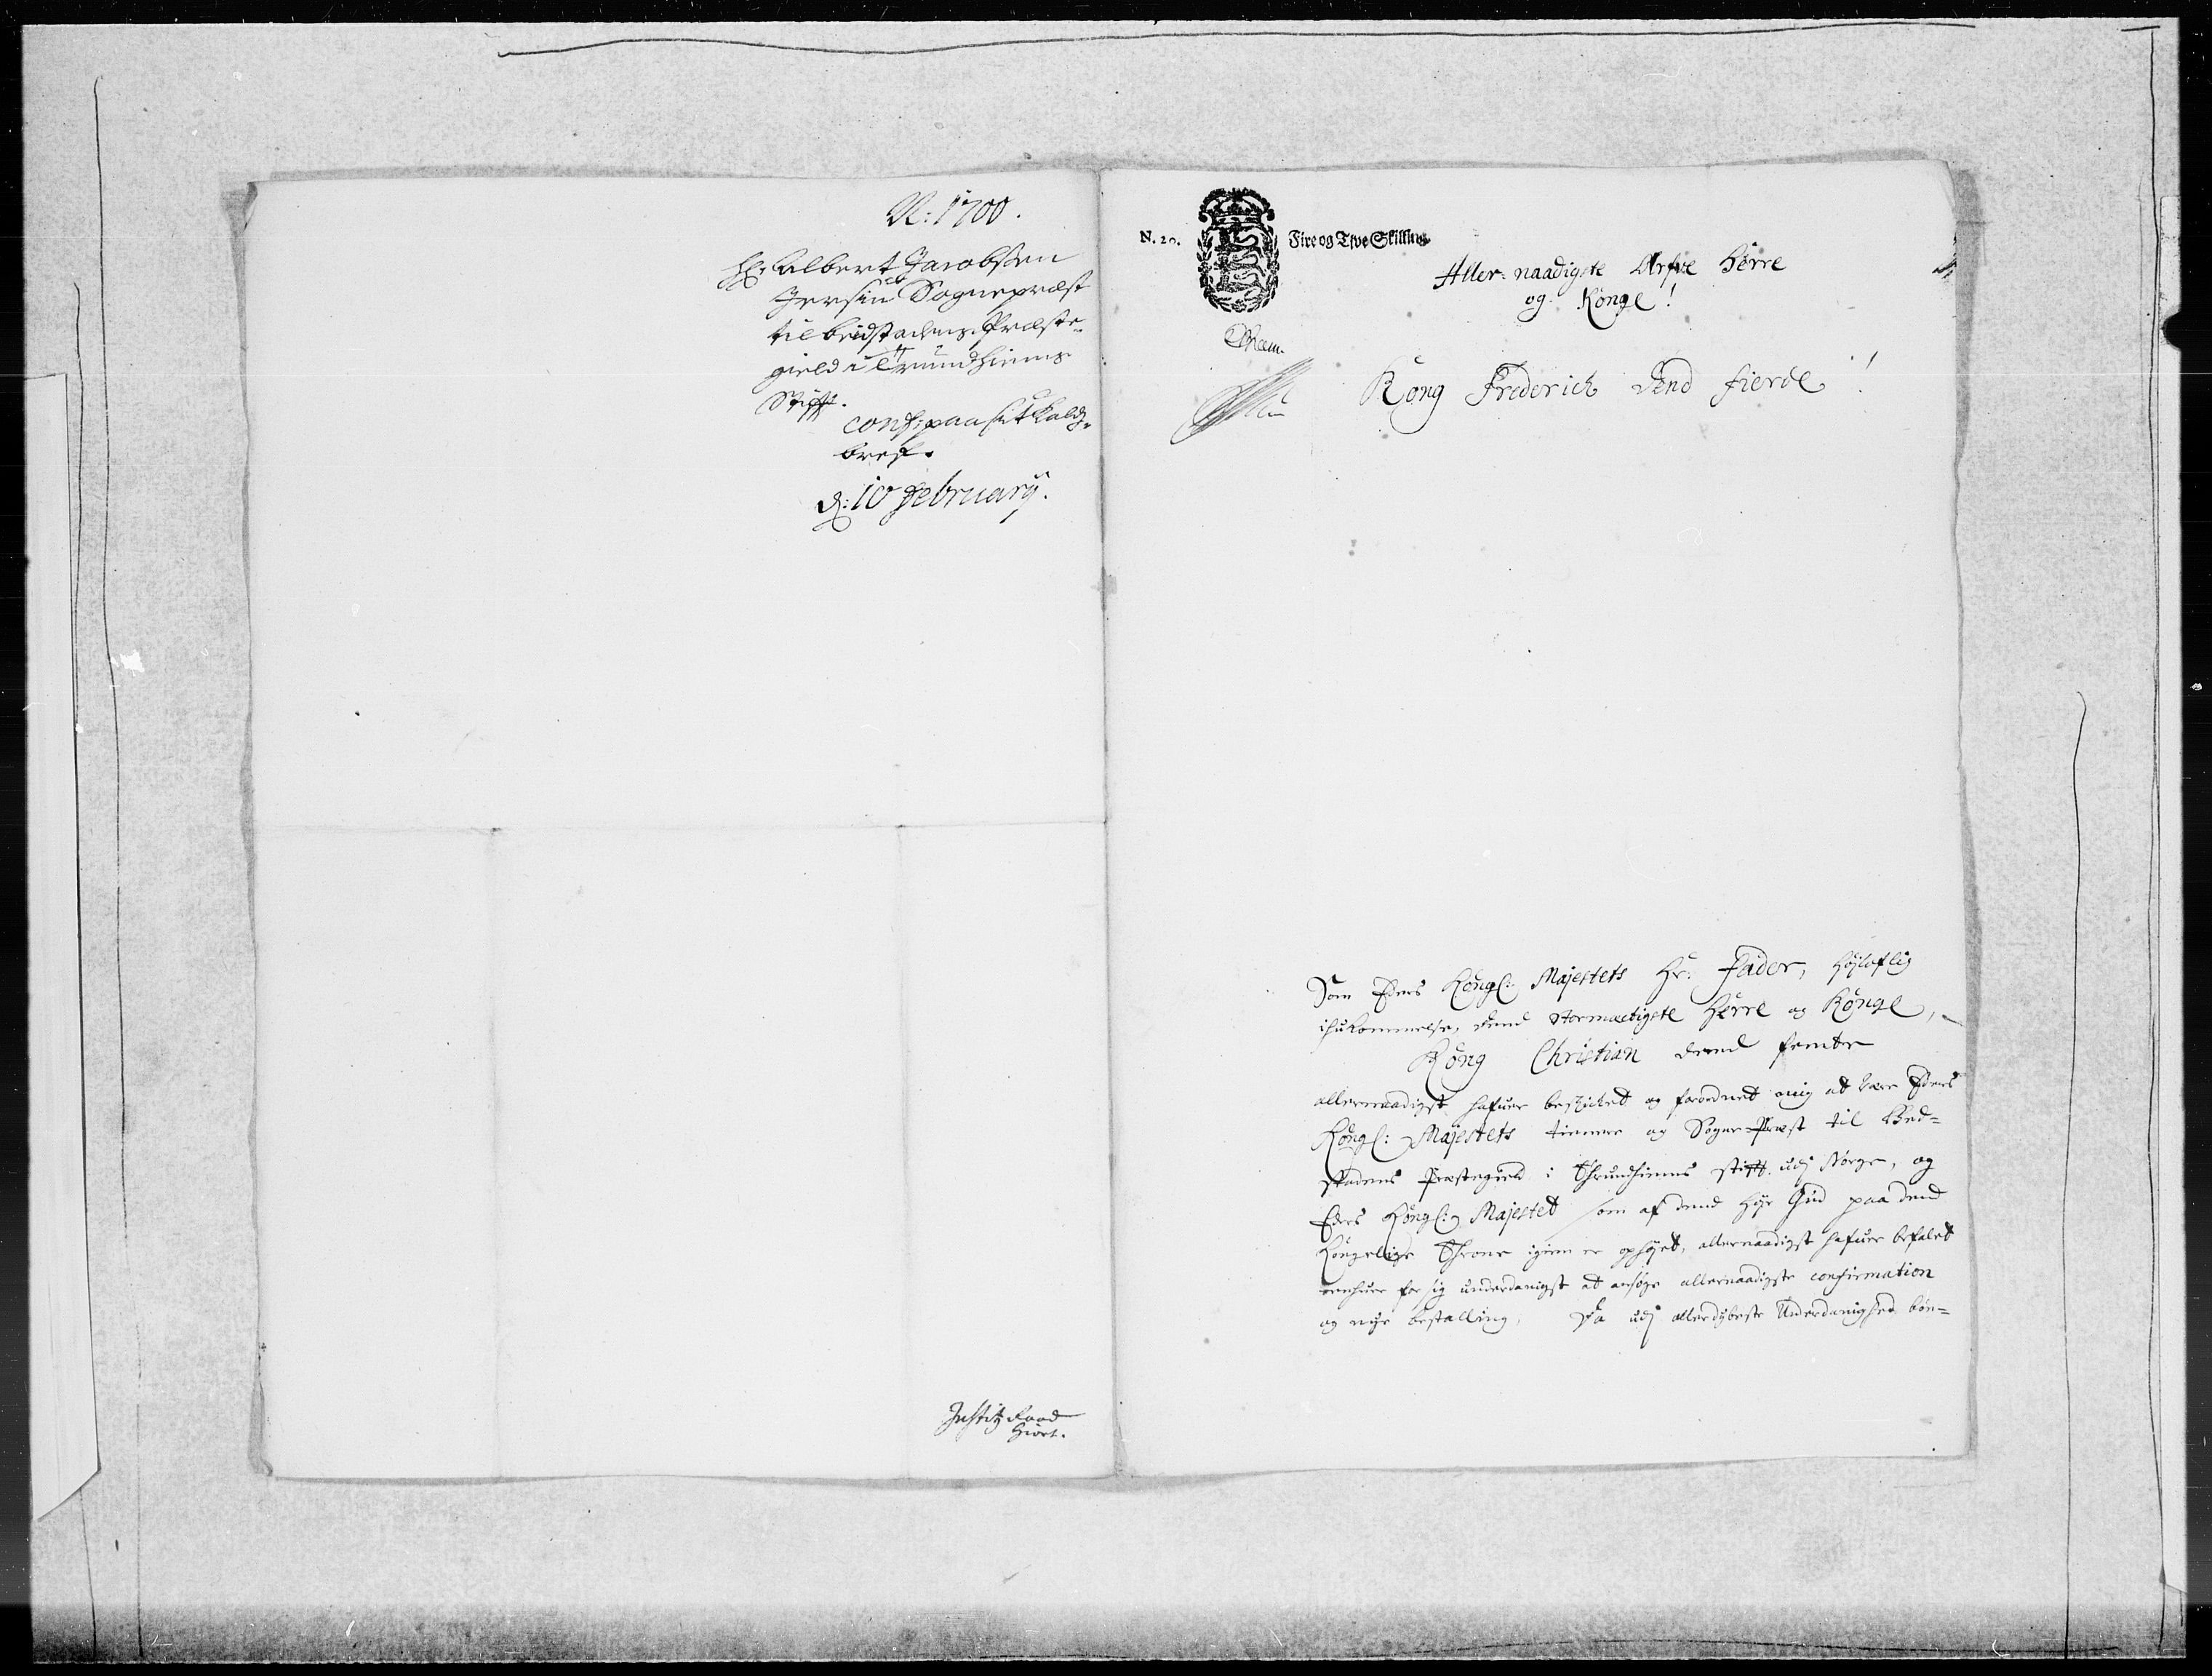 N: 1700.
Hr: Albert Jacobssen
Jersin Sognepræst
til bedstadens Præste-
gield i Trundhiems
Stifft.
conf: paa sit Kalds-
bref.
d: 10 February.
Justitz Raad
Hiort.
N. 20. Fire og Tive Skilling
Aller-naadigste Arfve Herre
og Konge!
Kong Frederich dend fierde!
Som Eders Kongl: Majestets Hr: Fader, Høyloflig
ihukommelse, dend stormæctigste Herre og Konge,
Kong Christian dend femte
allernaadigst hafuer beskicket og forordnet mig at være Eders
Kongl: Majestets tienere og Sogne-Præst til Bed-
stadens Præstegield i Thrundhiems stifft udj Norge, og
Eders Kongl: Majestet som af dend høye Gud paa dend
Kongelige Throne igien er ophøyet, allernaadigst hafuer befalet
enhuer for sig underdanigst at ansøge allernaadigste confirmation
og nye bestalling, Da udj allerdybeste Underdanighed bøn-